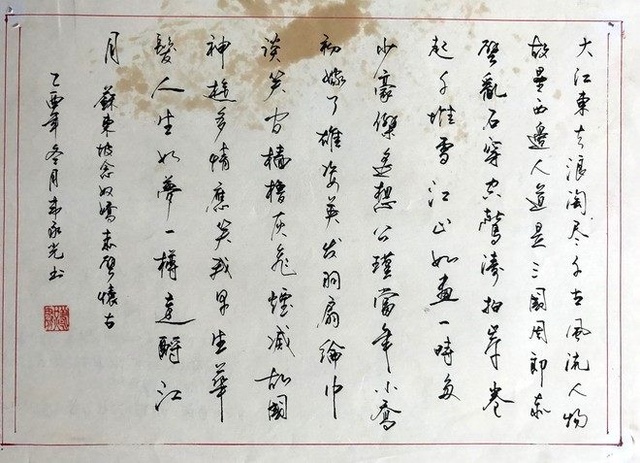 大江東去浪淘尽千古風流人物
故壘西邊人道是三國周郎赤
壁亂石穿空驚濤拍岸卷
起千堆雪江山如畫一時多
少豪傑遙想公瑾當年小喬
初嫁了雄姿英发羽扇綸巾
談笑间檣櫓灰飛煙滅故國
神遊多情應笑我早生華
髮人生如夢一樽還酹江
月 蘇東坡念奴嬌赤壁懷古
乙酉年冬月韦光书